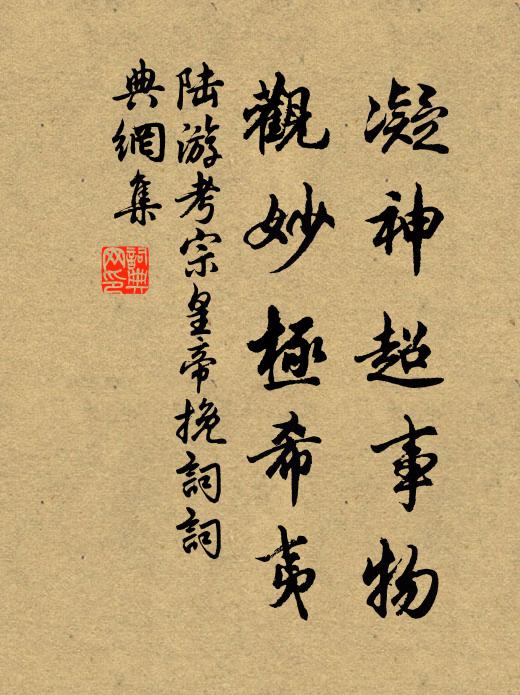 凝神超事物
觀妙極希夷
陸游考宗皇帝挽詞詞
典網集
詞典
网印